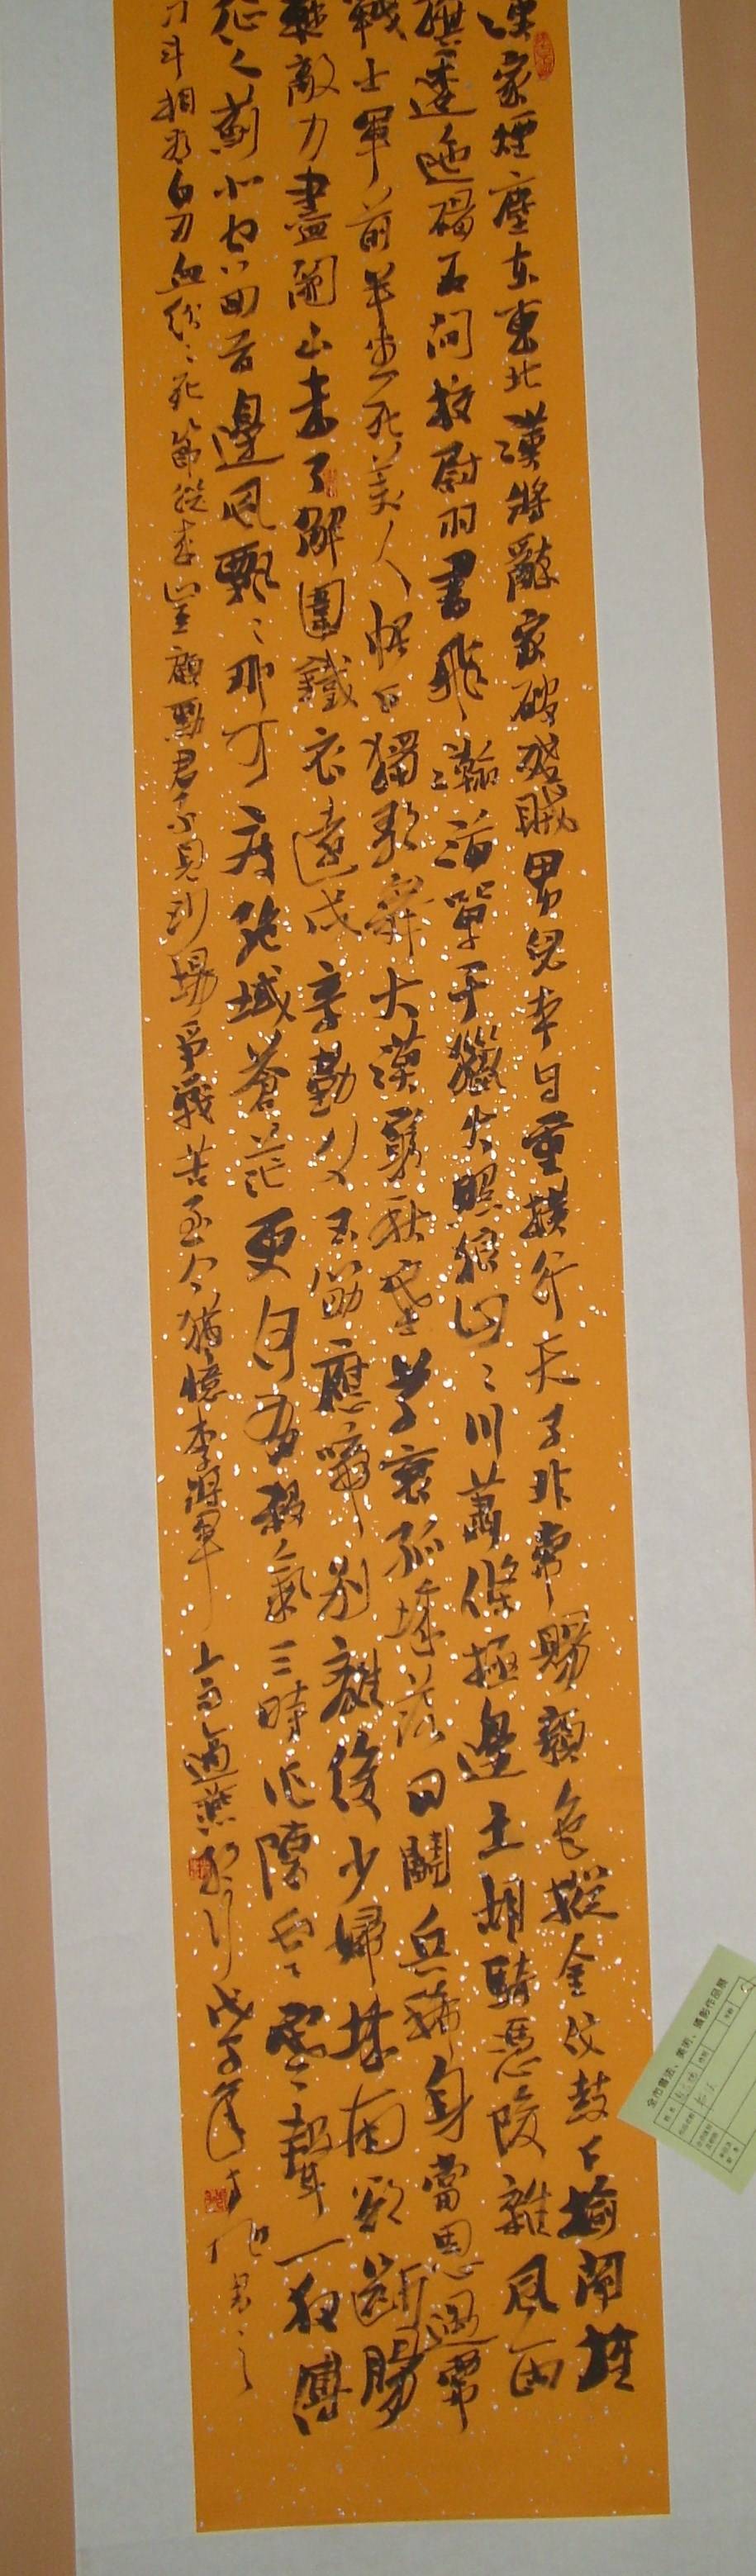 漢家煙塵在東北漢將辭家破殘賊男兒本自重橫行天子非常賜顏色摐金伐鼓下榆關旌
旗逶迤碣石間校尉羽書飛瀚海單于獵火照狼山山川蕭條極邊土胡騎憑陵雜風雨
戰士軍前半生死美人帳下猶歌舞大漠窮秋塞草衰孤城落日鬥兵稀身當恩遇常
輕敵力盡關山未解圍鐵衣遠戍辛勤久玉筯應啼別離後少婦城南欲斷腸
征人薊北空回首邊風飄飄那可度絕域蒼茫更何有殺氣三時作陣雲寒聲一夜傳
刁斗相看白刃血紛紛死節從來豈顧勳君不見沙場爭戰苦至今猶憶李將軍
高適燕歌行戊子年
全市書法、美術、攝影作品展